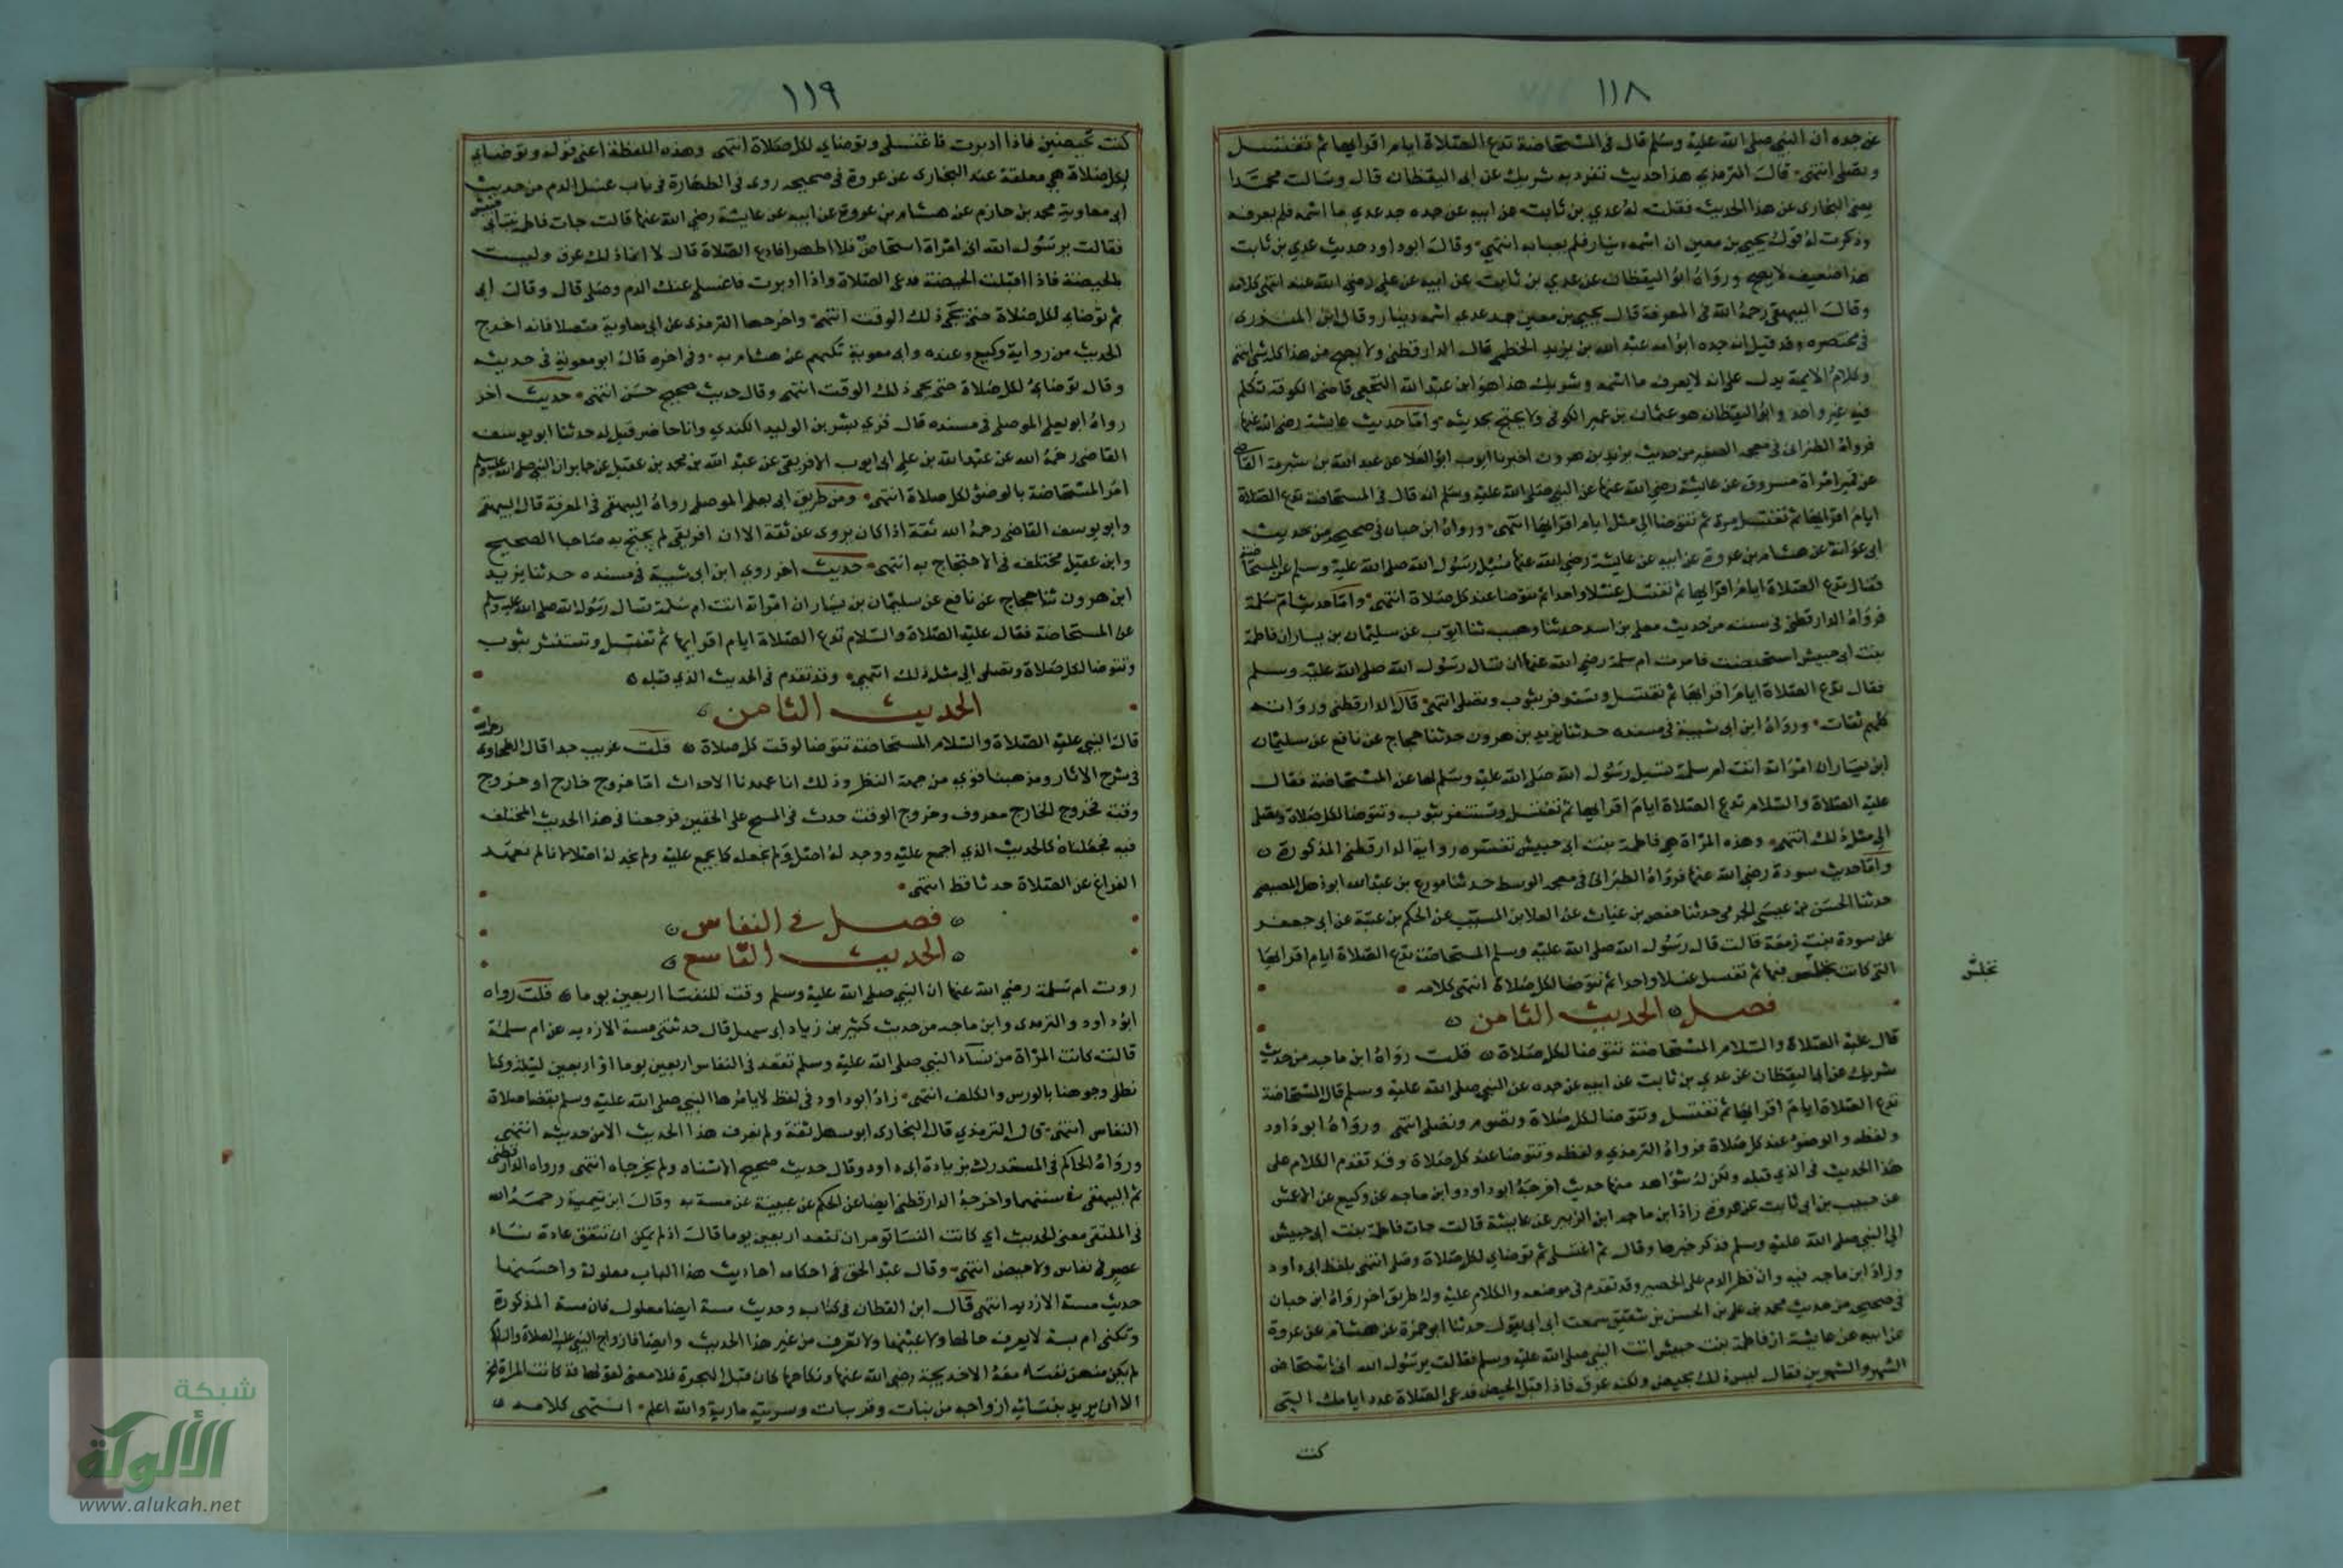 ١١٨
عن جده ان النبي صلى الله عليه وسلم قال في المستحاضة تدع الصلاة ايام اقرايها ثم تغتسل
وتصلى انتهى قال الترمذي هذا حديث تفرد به شريك عن ابى اليقظان قال وسالت محمدا
يعنى البخارى عن هذا الحديث فقلت له عدي بن ثابت عن ابيه عن جده جد عدي ما اسمه فلم يعرفه
وذكرت له قول يحيى بن معين ان اسمه دينار فلم يعبا به انتهى وقال ابو داود حديث عدي بن ثابت
هذا ضعيف لا يصح ورواه ابو اليقظان عن عدي بن ثابت عن ابيه عن على رضى الله عنه انتهى كلامه
وقال البيهقى رحمه الله فى المعرفة قال يحيى بن معين جد عدي اسمه دينار وقال ابن المنذرى
فى مختصره وقد قيل انه جده ابو امه عبد الله بن يزيد الخطمى قال الدارقطنى ولا يصح من هذا كله شى انتهى
وكلام الايمة يدل على انه لا يعرف ما اسمه وشريك هذا هو ابن عبد الله النخعى قاضى الكوفة تكلم
فيه غير واحد وابو اليقظان هو عثمان بن عمير الكوفى ولا يحتج بحديثه واما حديث عايشة رضى الله عنها
فرواه الطبرانى فى معجمه الصغير من حديث يزيد بن هرون اخبرنا ايوب ابو العلا عن عبد الله بن شبرمة القاضى
عن قمير امراة مسروق عن عايشة رضى الله عنها عن النبى صلى الله عليه وسلم انه قال فى المستحاضة تدع الصلاة
ايام اقرايها ثم تغتسل مرة ثم تتوضا الى مثل ايام اقرايها انتهى ورواه ابن حبان فى صحيحه من حديث
ابى عوانة عن هشام بن عروة عن ابيه عن عايشة رضى الله عنها سئل رسول الله صلى الله عليه وسلم عن المستحاضة
فقال تدع الصلاة ايام اقرايها ثم تغتسل غسلا واحدا ثم تتوضا عند كل صلاة انتهى واما حديث ام سلمة
فرواه الدارقطنى فى سننه من حديث معلى بن اسد حدثنا وهيب ثنا ايوب عن سليمان بن يسار ان فاطمة
بنت ابى حبيش استحيضت فامرت ام سلمة رضى الله عنها ان تسال رسول الله صلى الله عليه وسلم
فقال تدع الصلاة ايام اقرايها ثم تغتسل وتستثفر بثوب وتصلى انتهى قال الدارقطنى ورواته
كلهم ثقات ورواه ابن ابى شيبة فى مسنده حدثنا يزيد بن هرون حدثنا حجاج عن نافع عن سليمان
ابن يسار ان امراة اتت ام سلمة تسيل رسول الله صلى الله عليه وسلم لها عن المستحاضة فقال
عليه الصلاة والسلام تدع الصلاة ايام اقرايها ثم تغتسل وتستثفر بثوب وتتوضا لكل صلاة وتصلى
الى مثل ذلك انتهى وهذه المراة هى فاطمة بنت ابى حبيش تفسره رواية الدارقطنى المذكورة
واما حديث سودة رضى الله عنها فرواه الطبرانى فى معجمه الوسط حدثنا مورع بن عبد الله ابو ذهل المصيصى
حدثنا الحسن بن عيسى الحربى حدثنا حفص بن غياث عن العلا بن المسيب عن الحكم بن عتبة عن ابى جعفر
عن سودة بنت زمعة قالت قال رسول الله صلى الله عليه وسلم المستحاضة تدع الصلاة ايام اقرايها
التى كانت تجلس فيها ثم تغتسل غسلا واحدا ثم تتوضا لكل صلاة انتهى كلامه
تجلس
فصل الحديث الثامن
قال عليه الصلاة والسلام المستحاضة تتوضا لكل صلاة قلت رواه ابن ماجه من حديث
شريك عن ابى اليقظان عن عدي بن ثابت عن ابيه عن جده عن النبى صلى الله عليه وسلم قال المستحاضة
تدع الصلاة ايام اقرايها ثم تغتسل وتتوضا لكل صلاة وتصوم وتصلى انتهى ورواه ابو داود
ولفظه والوضوء عند كل صلاة فرواه الترمذي ولفظه وتتوضا عند كل صلاة وقد تقدم الكلام على
هذا الحديث فى الذى قبله ولكن له شواهد منها حديث اخرجه ابو داود وابن ماجه عن وكيع عن الاعمش
عن حبيب بن ابى ثابت عن عروة زاد ابن ماجه ابن الزبير عن عايشة قالت جات فاطمة بنت ابى حبيش
الى النبى صلى الله عليه وسلم فذكر خبرها وقال ثم اغتسلى ثم توضاى لكل صلاة وصلى انتهى بلفظ ابى داود
وزاد ابن ماجه فيه وان قطر الدم على الحصير وقد تقدم فى موضعه والكلام عليه وله طريق اخر رواه ابن حبان
فى صحيحه من حديث محمد بن على بن الحسن بن شقيق سمعت ابى يقول حدثنا ابو حمزة عن هشام عن عروة
عن ابيه عن عايشة ان فاطمة بنت حبيش اتت النبى صلى الله عليه وسلم فقالت يرسول الله انى استحاض
الشهر والشهرين فقال ليس ذلك بحيض ولكنه عرق فاذا اقبل الحيض فدعى الصلاة عدد ايامك التى
كنت
١١٩
كنت تحيضين فاذا ادبرت فاغتسلى وتوضاى لكل صلاة انتهى وهذه اللفظة اعنى قوله وتوضاى
لكل صلاة هى معلقة عند البخارى عن عروة فى صحيحه روى فى الطهارة فى باب غسل الدم من حديث
ابى معاوية محمد بن حازم عن هشام بن عروة عن ابيه عن عايشة رضى الله عنها قالت جات فاطمة بنت ابى حبيش
فقالت يرسول الله انى امراة استحاض فلا اطهر افادع الصلاة قال لا انما ذلك عرق وليست
بالحيضة فاذا اقبلت الحيضة فدعى الصلاة واذا ادبرت فاغسلى عنك الدم وصلى قال وقال ابى
ثم توضاى لكل صلاة حتى يجئ ذلك الوقت انتهى واخرجها الترمذى عن ابى معاوية متصلا فانه اخرج
الحديث من رواية وكيع وعبده وابى معوية كلهم عن هشام به وفى اخره قال ابو معوية فى حديثه
وقال توضاى لكل صلاة حتى يجى ذلك الوقت انتهى وقال حديث صحيح حسن انتهى حديث اخر
رواه ابو يعلى الموصلى فى مسنده قال قرى بشر بن الوليد الكندي وانا حاضر قيل له حدثنا ابو يوسف
القاضى رحمه الله عن عبد الله بن على ابى ايوب الافريقى عن عبد الله بن محمد بن عقيل عن جابر ان النبى صلى الله عليه وسلم
امر المستحاضة بالوضؤ لكل صلاة انتهى ومن طريق ابى يعلى الموصلى رواه البيهقى فى المعرفة قال البيهقى
وابو يوسف القاضى رحمه الله ثقة اذا كان يروى عن ثقة الا ان افريقى لم يحتج به صاحبا الصحيح
وابن عقيل مختلف فى الاحتجاج به انتهى حديث اخر روى ابن ابى شيبة فى مسنده حدثنا يزيد
ابن هرون ثنا حجاج عن نافع عن سليمان بن يسار ان امراة اتت ام سلمة تسال رسول الله صلى الله عليه وسلم
عن المستحاضة فقال عليه الصلاة والسلام تدع الصلاة ايام اقرايها ثم تغتسل وتستثفر بثوب
وتتوضا لكل صلاة وتصلى الى مثل ذلك انتهى وقد تقدم فى الحديث الذى قبله
الحديث الثامن
قال النبى عليه الصلاة والسلام المستحاضة تتوضا لوقت كل صلاة قلت غريب جدا قال الطحاوى رحمه الله
فى شرح الاثار ومذهبنا قوي من جهة النظر وذلك انا عهدنا الاحداث اما خروج خارج او خروج
وقت فخروج الخارج معروف وخروج الوقت حدث فى المسح على الخفين فرجعنا فى هذا الحديث المختلف
فيه فجعلناه كالحديث الذى اجمع عليه ووجد له اصل ولم نجعله كما يجمع عليه ولم نجد له اصلا انا لم نعهد
الفراغ عن الصلاة حدثا قط انتهى
فصل فى النفاس
الحديث التاسع
روت ام سلمة رضى الله عنها ان النبى صلى الله عليه وسلم وقت للنفسا اربعين يوما قلت رواه
ابو داود والترمذى وابن ماجه من حديث كثير بن زياد ابى سهل قال حدثتنى مسة الازديه عن ام سلمة
قالت كانت المراة من نساء النبى صلى الله عليه وسلم تقعد فى النفاس اربعين يوما او اربعين ليلة وكنا
نطلى وجوهنا بالورس والكلف انتهى زاد ابو داود فى لفظ لا يامرها النبى صلى الله عليه وسلم بقضا صلاة
النفاس انتهى قال الترمذي قال البخارى ابو سهل ثقة ولم نعرف هذا الحديث الا من حديثه انتهى
ورواه الحاكم فى المستدرك بزيادة ابى داود وقال حديث صحيح الاسناد ولم يخرجاه انتهى ورواه الدارقطنى
ثم البيهقى فى سننهما واخرجه الدارقطنى ايضا عن الحكم عن عيينة عن مسة به وقال ابن تيمية رحمه الله
فى المنتقى معنى الحديث اى كانت النسا تومر ان تقعد اربعين يوما قال اذ لم يمكن ان تتفق عادة نساء
عصر فى نفاس ولا حيض انتهى وقال عبد الحق فى احكامه احاديث هذا الباب معلولة واحسنها
حديث مسة الازديه انتهى قال ابن القطان فى كتابه وحديث مسة ايضا معلول فان مسة المذكورة
وتكنى ام بسة لا يعرف حالها ولا عينها ولا تعرف من غير هذا الحديث وايضا فازواج النبى عليه الصلاة والسلام
لم يكن منهن نفساء معه الا خديجة رضى الله عنها ونكاحها كان قبل الهجرة فلا معنى لقولها قد كانت المراة الخ
الا ان يريد بنسائه ازواجه من بنات وقريبات وسريته مارية والله اعلم انتهى كلامه
شبكة
الألوكة
www.alukah.net